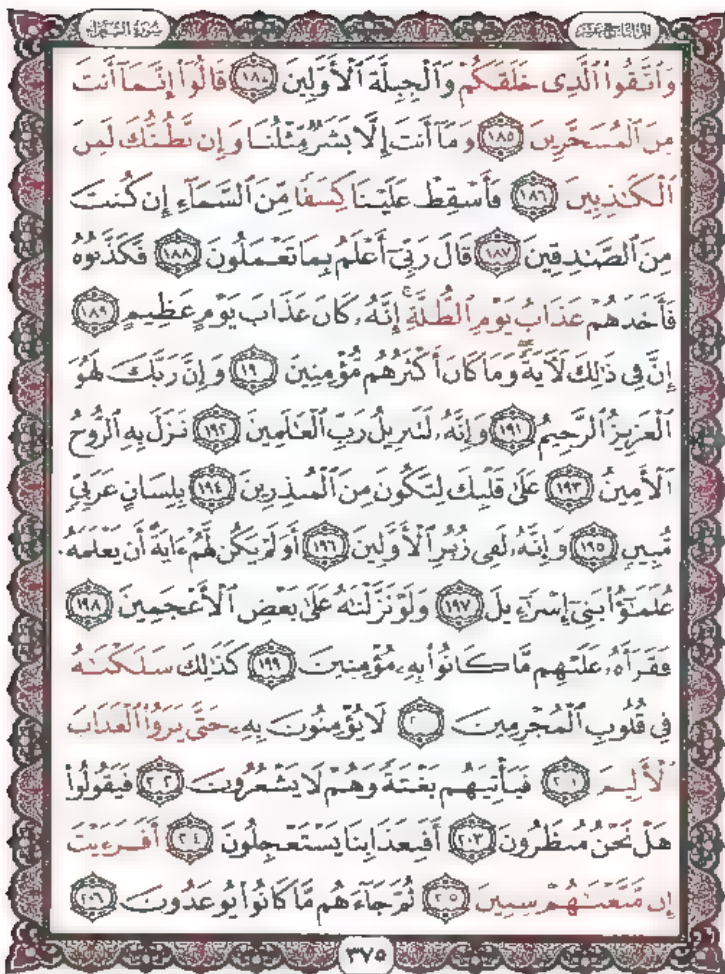 سورة الشعراء الجزء التاسع عشر
وَاتَّقُوا الَّذِي خَلَقَكُمْ وَالْجِبِلَّةَ الْأَوَّلِينَ ١٨٤ قَالُوا إِنَّمَا أَنتَ
مِنَ الْمُسَحَّرِينَ ١٨٥ وَمَا أَنتَ إِلَّا بَشَرٌ مِّثْلُنَا وَإِن نَّظُنُّكَ لَمِنَ
الْكَٰذِبِينَ ١٨٦ فَأَسْقِطْ عَلَيْنَا كِسَفًا مِّنَ السَّمَاءِ إِن كُنتَ
مِنَ الصَّٰدِقِينَ ١٨٧ قَالَ رَبِّي أَعْلَمُ بِمَا تَعْمَلُونَ ١٨٨ فَكَذَّبُوهُ
فَأَخَذَهُمْ عَذَابُ يَوْمِ الظُّلَّةِ ۚ إِنَّهُ كَانَ عَذَابَ يَوْمٍ عَظِيمٍ ١٨٩
إِنَّ فِي ذَٰلِكَ لَآيَةً ۖ وَمَا كَانَ أَكْثَرُهُم مُّؤْمِنِينَ ١٩٠ وَإِنَّ رَبَّكَ لَهُوَ
الْعَزِيزُ الرَّحِيمُ ١٩١ وَإِنَّهُ لَتَنزِيلُ رَبِّ الْعَٰلَمِينَ ١٩٢ نَزَلَ بِهِ الرُّوحُ
الْأَمِينُ ١٩٣ عَلَىٰ قَلْبِكَ لِتَكُونَ مِنَ الْمُنذِرِينَ ١٩٤ بِلِسَانٍ عَرَبِيٍّ
مُّبِينٍ ١٩٥ وَإِنَّهُ لَفِي زُبُرِ الْأَوَّلِينَ ١٩٦ أَوَلَمْ يَكُن لَّهُمْ ءَايَةً أَن يَعْلَمَهُ
عُلَمَٰٓؤُا بَنِي إِسْرَٰٓءِيلَ ١٩٧ وَلَوْ نَزَّلْنَٰهُ عَلَىٰ بَعْضِ الْأَعْجَمِينَ ١٩٨
فَقَرَأَهُ عَلَيْهِم مَّا كَانُوا بِهِ مُؤْمِنِينَ ١٩٩ كَذَٰلِكَ سَلَكْنَٰهُ
فِي قُلُوبِ الْمُجْرِمِينَ ٢٠٠ لَا يُؤْمِنُونَ بِهِ حَتَّىٰ يَرَوُا الْعَذَابَ
الْأَلِيمَ ٢٠١ فَيَأْتِيَهُم بَغْتَةً وَهُمْ لَا يَشْعُرُونَ ٢٠٢ فَيَقُولُوا
هَلْ نَحْنُ مُنظَرُونَ ٢٠٣ أَفَبِعَذَابِنَا يَسْتَعْجِلُونَ ٢٠٤ أَفَرَءَيْتَ
إِن مَّتَّعْنَٰهُمْ سِنِينَ ٢٠٥ ثُمَّ جَاءَهُم مَّا كَانُوا يُوعَدُونَ ٢٠٦
٣٧٥